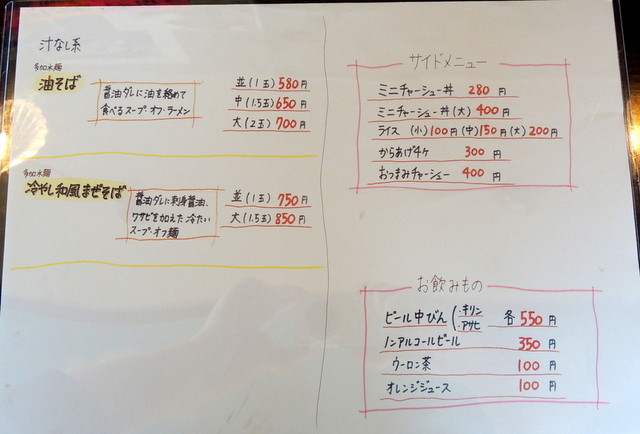 汁なし系
多加水麺
油そば
醤油ダレに油を絡めて
食べるスープ・オフ・ラーメン
並(1玉)580円
中(1.5玉)650円
大(2玉)700円
多加水麺
冷やし和風まぜそば
醤油ダレに刺身醤油、
ワサビを加えた冷たい
スープ・オフ麺
並(1玉) 750円
大(1.5玉)850円
サイドメニュー
ミニチャーシュー丼 280円
ミニチャーシュー丼(大) 400円
ライス (小)100円(中)150円(大)200円
からあげ4ヶ 300円
おつまみチャーシュー 400円
お飲みもの
ビール中びん(・キリン ・アサヒ 各550円
ノンアルコールビール 350円
ウーロン茶 100円
オレンジジュース 100円